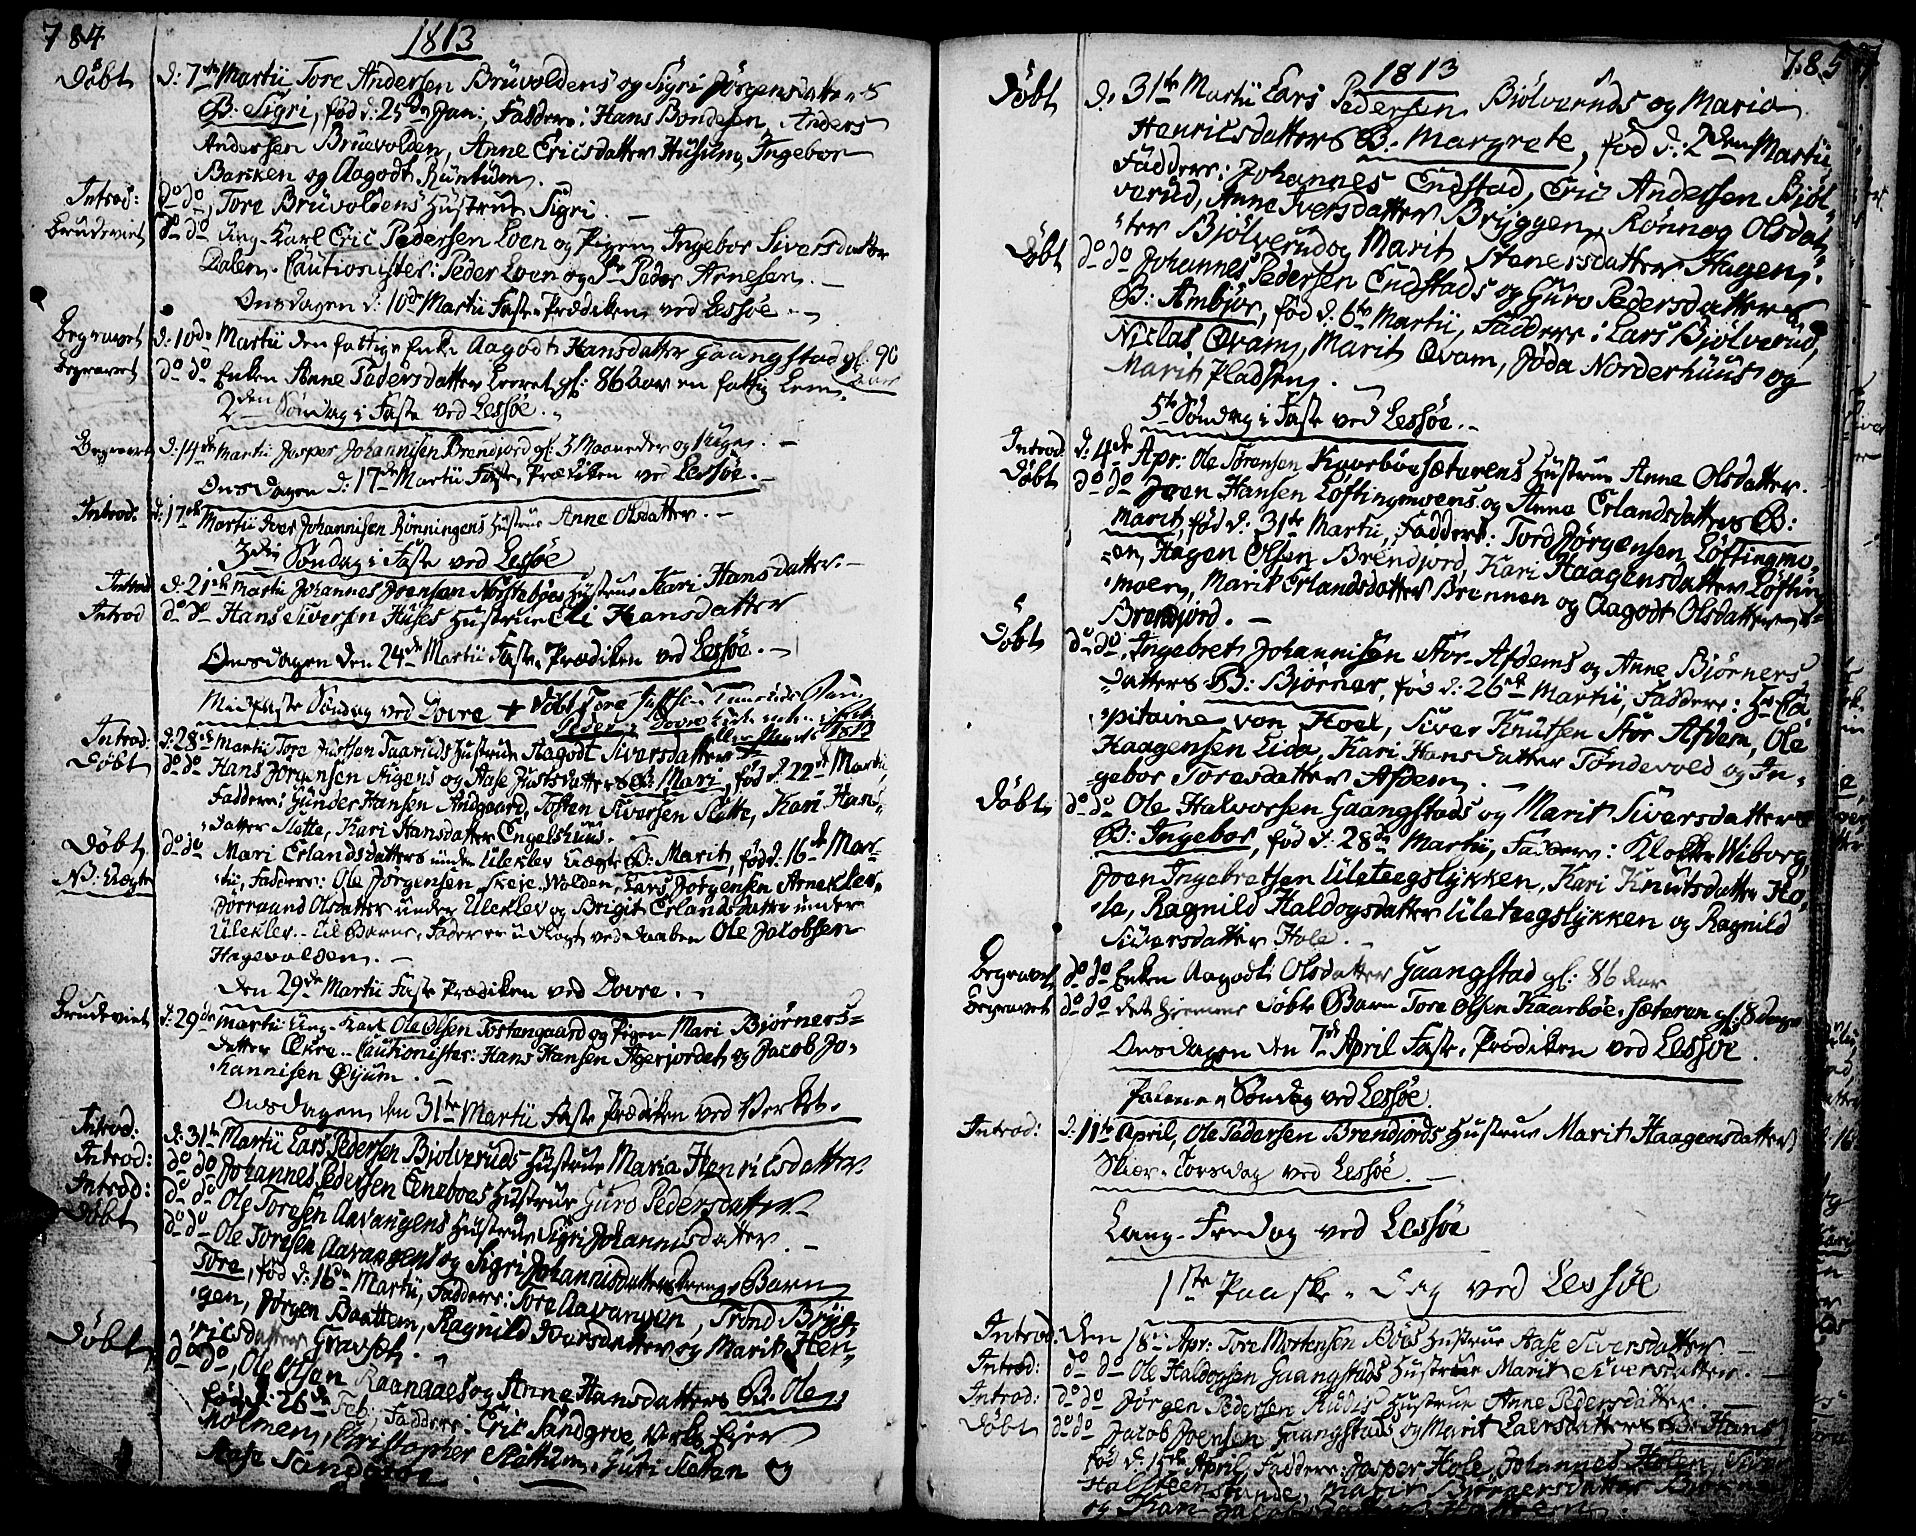 784
1813
Döbt d: 7de Martii Tore Andersen Brüvoldens og Sigri Jörgensdatters
B. Sigri, föd d: 25de Jan: Faddere: Hans Bondesen, Anders
Andersen Brüvolden, Anne Ericsdatter Husum, Ingebor
Barken og Aagodt
Introd: do do, Tore Brüvoldens Hustrue Sigri. -
Brudeviet do do Ung-Karl Eric Pedersen Loen og Pigen Ingebor Siversdatter
Dalen. Cautionister: Peder Loen og Peder Arnesen. -
Onsdagen d: 10de Martii Faste-Prædiken ved Lessöe. -
Begravet d: 10de Martii den fattige Enke Aagodt Hansdatter Gaangstad gl: 90
Aar
Begravet do do Enken Anne gl: 86 Aar en fattig Lem.
2den Söndag i Faste ved Lessöe.
Begravet d: 14de Martii Jasper Johannisen Brendjord gl: 3 Maaneder og
Onsdagen d: 17de Martii Faste-Prædiken ved Lessöe. -
Introd: d: 17de Martii Iver Johannisen Rönningens Hustrue Anne Olsdatter. -
3die Söndag i Faste ved Lessöe
Introd d: 21de Martii Johannes Joensen Hustrue Kari Hansdatter. -
Introd do do Hans Siversen Huses Hustrue Eli Hansdatter
Onsdagen den 24de Martii Faste-Prædiken ved Lessöe. -
Midfaste Söndag ved Dovre + döbt Tore
Introd: d: 28de Martii Tore Justsen Taaruds Hustrue Aagodt Siversdatter
Döbt do do Hans Jörgensen Stigens og Aase B: Mari, föd d. 22de Martii,
Faddere: Gunder Hansen Andgaard, Tosten Siversen Slette, Kari Hans-
datter Slette, Kari Hansdatter Engelshuus.
Döbt do do Mari Erlandsdatters under Uleklev Uægte B: Marit, föd d: 16de Mar-
NB: Uægte tii, Faddere: Ole Jörgensen Skeje-Wolden, Lars Jörgensen Arneklev,
Jorraand Olsdatter under Uleklev og Brigit Erlandsdatter under
Uleklev. - Til Barne-Fader er udlagt ved Daaben Ole Jacobsen
Hagevolden. -
Den 29de Martii Faste Prædiken ved Dovre. -
Brudeviet d: 29de Martii Ung-Karl Ole Olsen Tostengaard og Pigen Mari Björners-
datter Ekre. - Cautionister: Hans Hansen Agerjordet og Jacob Jo-
hannisen Öyum. -
Onsdagen den 31te Martii Faste Prædiken ved Verket.
Introd: d: 31te Martii Lars Pedersen Bjölveruds Hustrue Maria Henricsdatter
Introd: do do Johannes Pedersen Hustrue Guro Pedersdatter -
Introd: do do Ole Torgsen Aavangens Hustrue Sigri Johannisdatter. -
Döbt do do Ole Torgsen Aavangens og Sigri Johannisdatters Drenge-Barn
Tore, föd d: 16de Martii, Faddere: Tore Aavangen, Trond Bryg-
gen, Jörgen Baattem, Ragnild Iversdatter og Marit Hen-
ricsdatter Gravset. -
Döbt do do, Ole Olsen Raanaaes og Anne Hansdatters B. Ole,
föd d: 26de Feb: Faddere: Eric Sandgroe, Verks-Eier
Holmen, Christopher Slettum, Guri Sletten og
Aase Sandgroe
785
1813
Döbt d: 31te Martii Lars Pedersen Bjölveruds og Maria
Henricsdatters B: Margrete, föd d: 2den Martii
Faddere: Johannes Endstad, Eric Andersen Bjöl-
verud, Anne Iversdatter Bryggen, Rönnog Olsdat-
ter Bjölverud og Marit Stenersdatter Hagen.
Döbt do do Johannes Pedersen Endstads og Guro Pedersdatters
B: Ambjör, föd d: 6te Martii, Faddere: Lars Bjölverud,
Niclas Qvam, Marit Qvam, Jöda Norderhuus og
Marit Pladsen. -
5te Söndag i Faste ved Lessöe. -
Introd: d: 4de Apr: Ole Sörensen Kaarböesæterens Hustrue Anne Olsdatter.
Döbt do do Joen Hansen Löftingmoens og Anne Erlandsdatters B:
Marit, föd d: 31te Martii, Faddere: Tord Jörgensen Löftingmo-
en, Hagen Olsen Brendjord, Kari Haagensdatter Löfting-
moen, Marit Erlandsdatter Brennen og Aagodt Olsdatter
Brendjord. -
Döbt do do, Ingebret Johannisen Stor-Afdems og Anne Björners-
datters B: Björner, föd d: 26de Martii, Faddere: Hr Ca-
pitaine von Hoel, Siver Knutsen Stor Afdem, Ole
Haagensen Lida, Kari Hansdatter Töndevold og In-
gebor Toresdatter Afdem. -
Döbt do do Ole Halvorsen Gaangstads og Marit Siversdatters
B: Ingebor, föd d: 28de Martii, Faddere: Klokker Wiborg,
Joen Ingebretsen Uleteegslykken, Kari Knutsdatter Ho-
le, Ragnild Haldogsdatter Uleteegslykken og Ragnild
Siversdatter Hole. -
Begravet do do Enken Aagodt Olsdatter Gaangstad gl: 86 Aar
Begravet do do det hjemme döbte Barn Tore Olsen Kaarböe-sæteren gl: 8 dage
Onsdagen den 7de April Faste-Prædiken ved Lessöe.
Palme-Söndag ved Lessöe.
Introd: d: 11te April, Ole Pedersen Brendjords Hustrue Marit Haagensdatter
Skiær-Torsdag ved Lessöe. -
Lang-Fredag ved Lessöe
1ste Paaske-Dag ved Lessöe
Introd: den 18de Apr: Tore Mortensen Böes Hustrue Aase Siversdatter
Introd: do do Ole Haldogsen Gaangstads Hustrue Marit Siversdatter. -
Introd: do do Jörgen Pedersen Rudis Hustrue Anne Pedersdatter. -
Döbt do do Jacob Joensen Gaangstads og Marit Larsdatters B: Hans
föd d. 15de April, Faddere: Jasper Hole, Johannes Holen,
Björnersdatter
og Kari